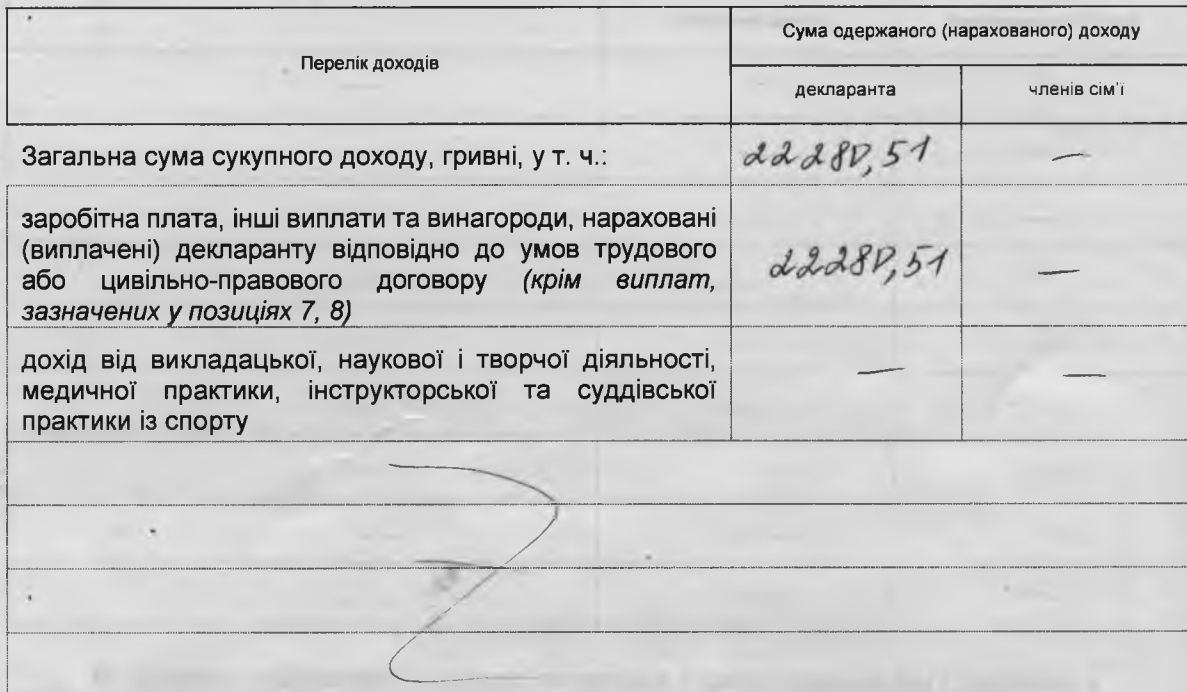 Перелік доходів
Сума одержаного (нарахованого) доходу
декларанта
членів сім'ї
Загальна сума сукупного доходу, гривні, у т. ч.:
22280,51
—
заробітна плата, інші виплати та винагороди, нараховані
(виплачені) декларанту відповідно до умов трудового
або цивільно-правового договору (крім виплат,
зазначених у позиціях 7, 8)
22280,51
—
дохід від викладацької, наукової і творчої діяльності,
медичної практики, інструкторської та суддівської
практики із спорту
—
—